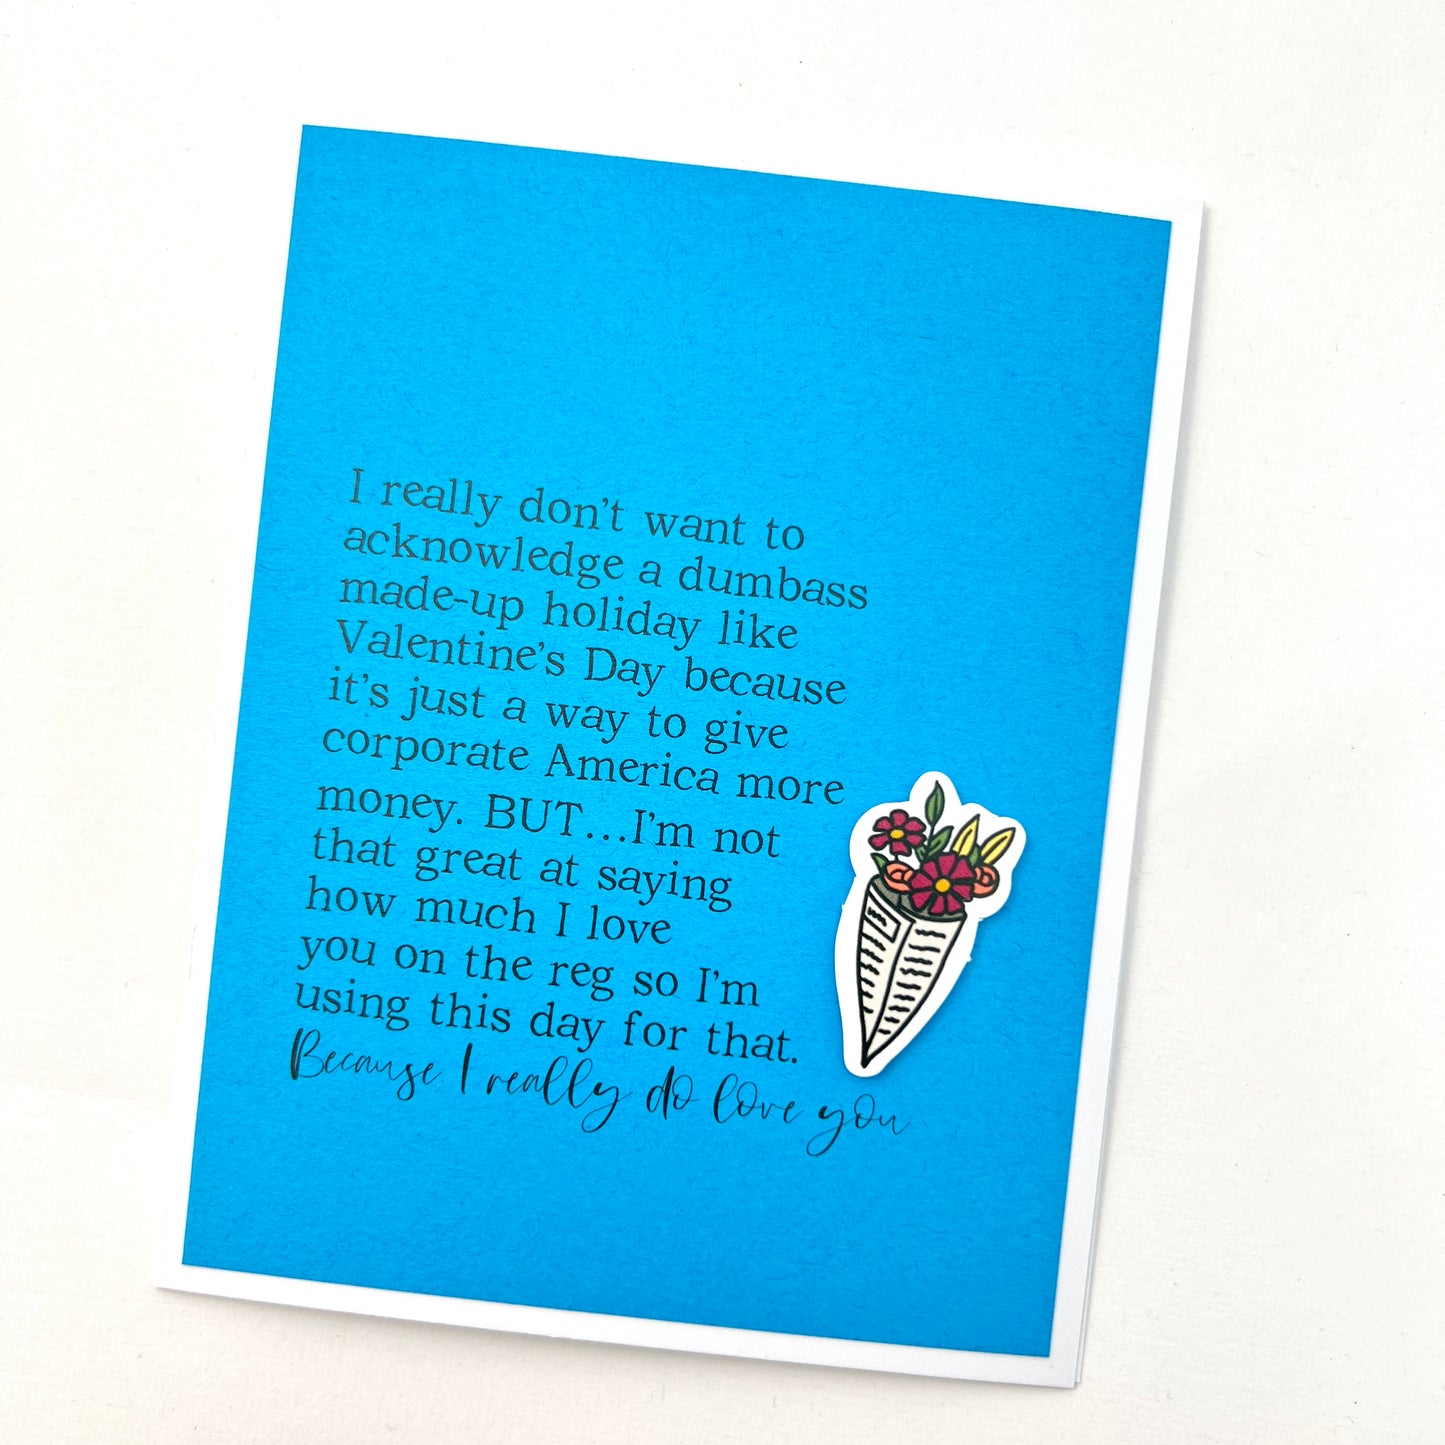 I really don't want to
acknowledge a dumbass
made-up holiday like
Valentine's Day because
it's just a way to give
corporate America more
money. BUT...I'm not
that great at saying
how much I love
you on the reg so I'm
using this day for that.
Because I really do love you